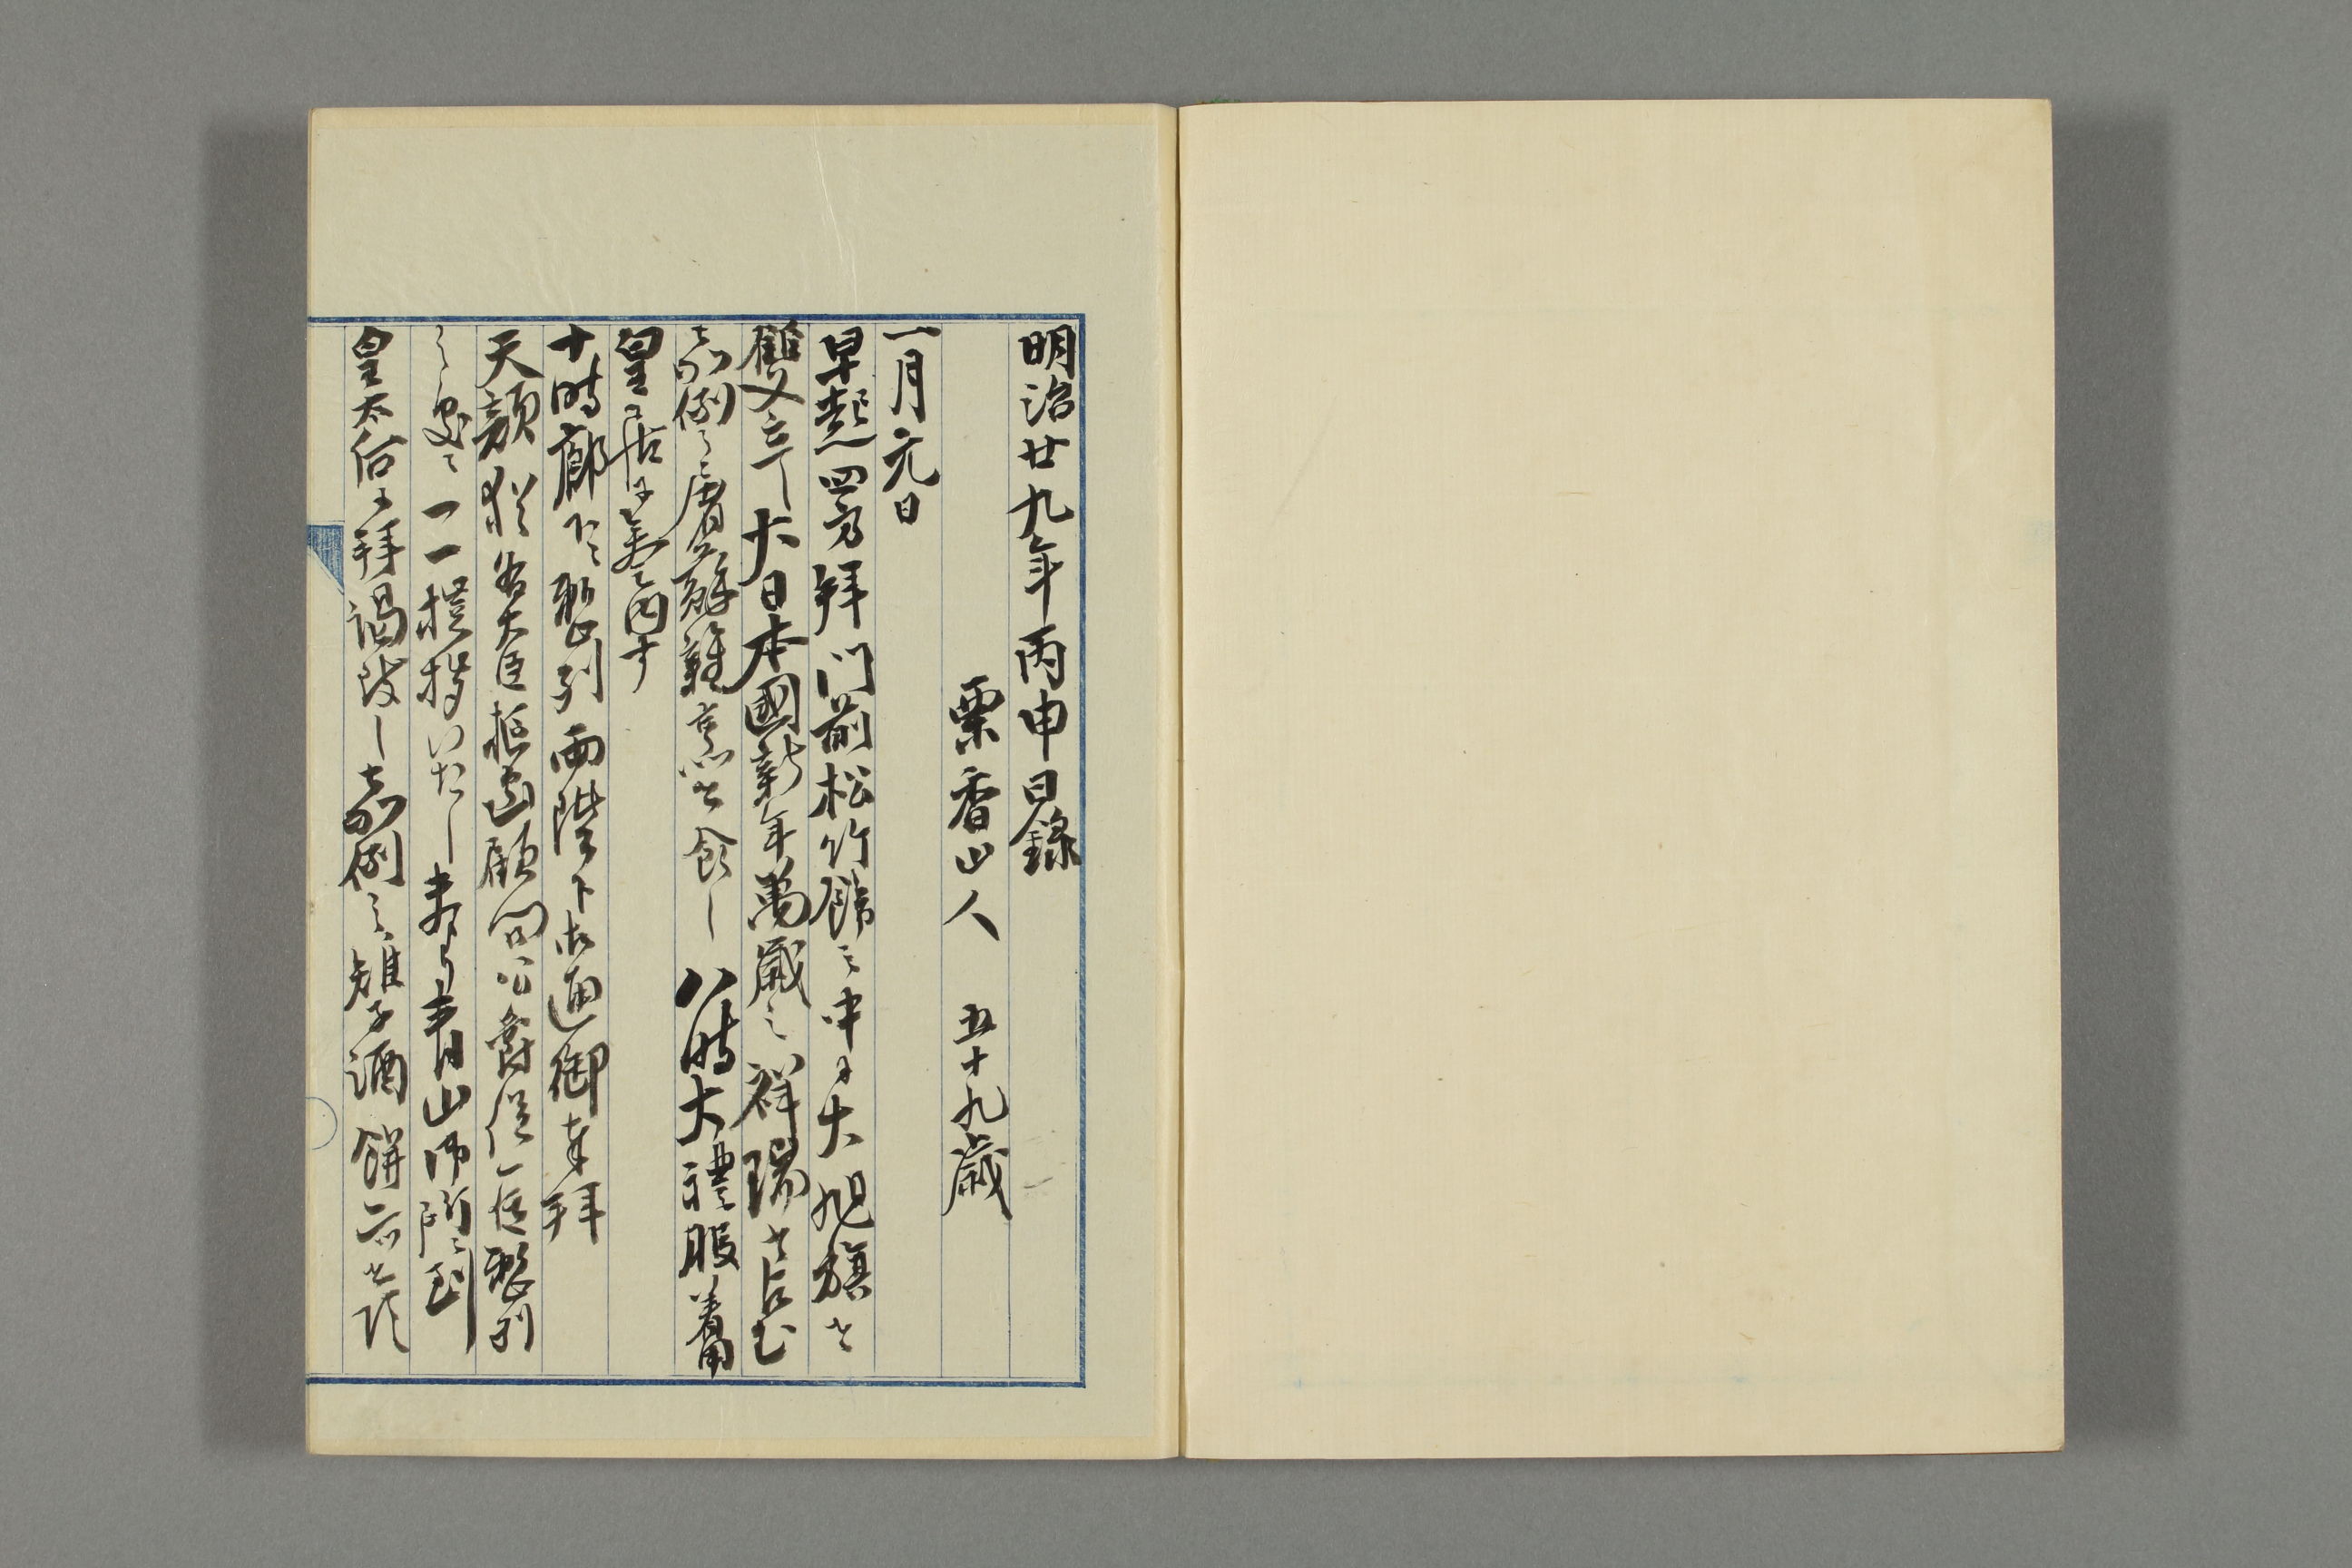 明治廿九年丙申日錄
栗香山人 五十九歳
一月元日
早起四方拜門前松竹餝之中ニ大旭旗を
樹立し大日本國新年萬歳之祥瑞を占む
嘉例之屠蘇雜煮を食し 八時大禮服着用
皇居に参内す
十時廊下ニ整列両陛下御通御奉拜
天顔 大臣樞密顧問公爵 整列
之處ニ一一挨拶いたし 青山御所ニ到
皇太后ニ拜謁致し嘉例之雉子酒餅 を頂